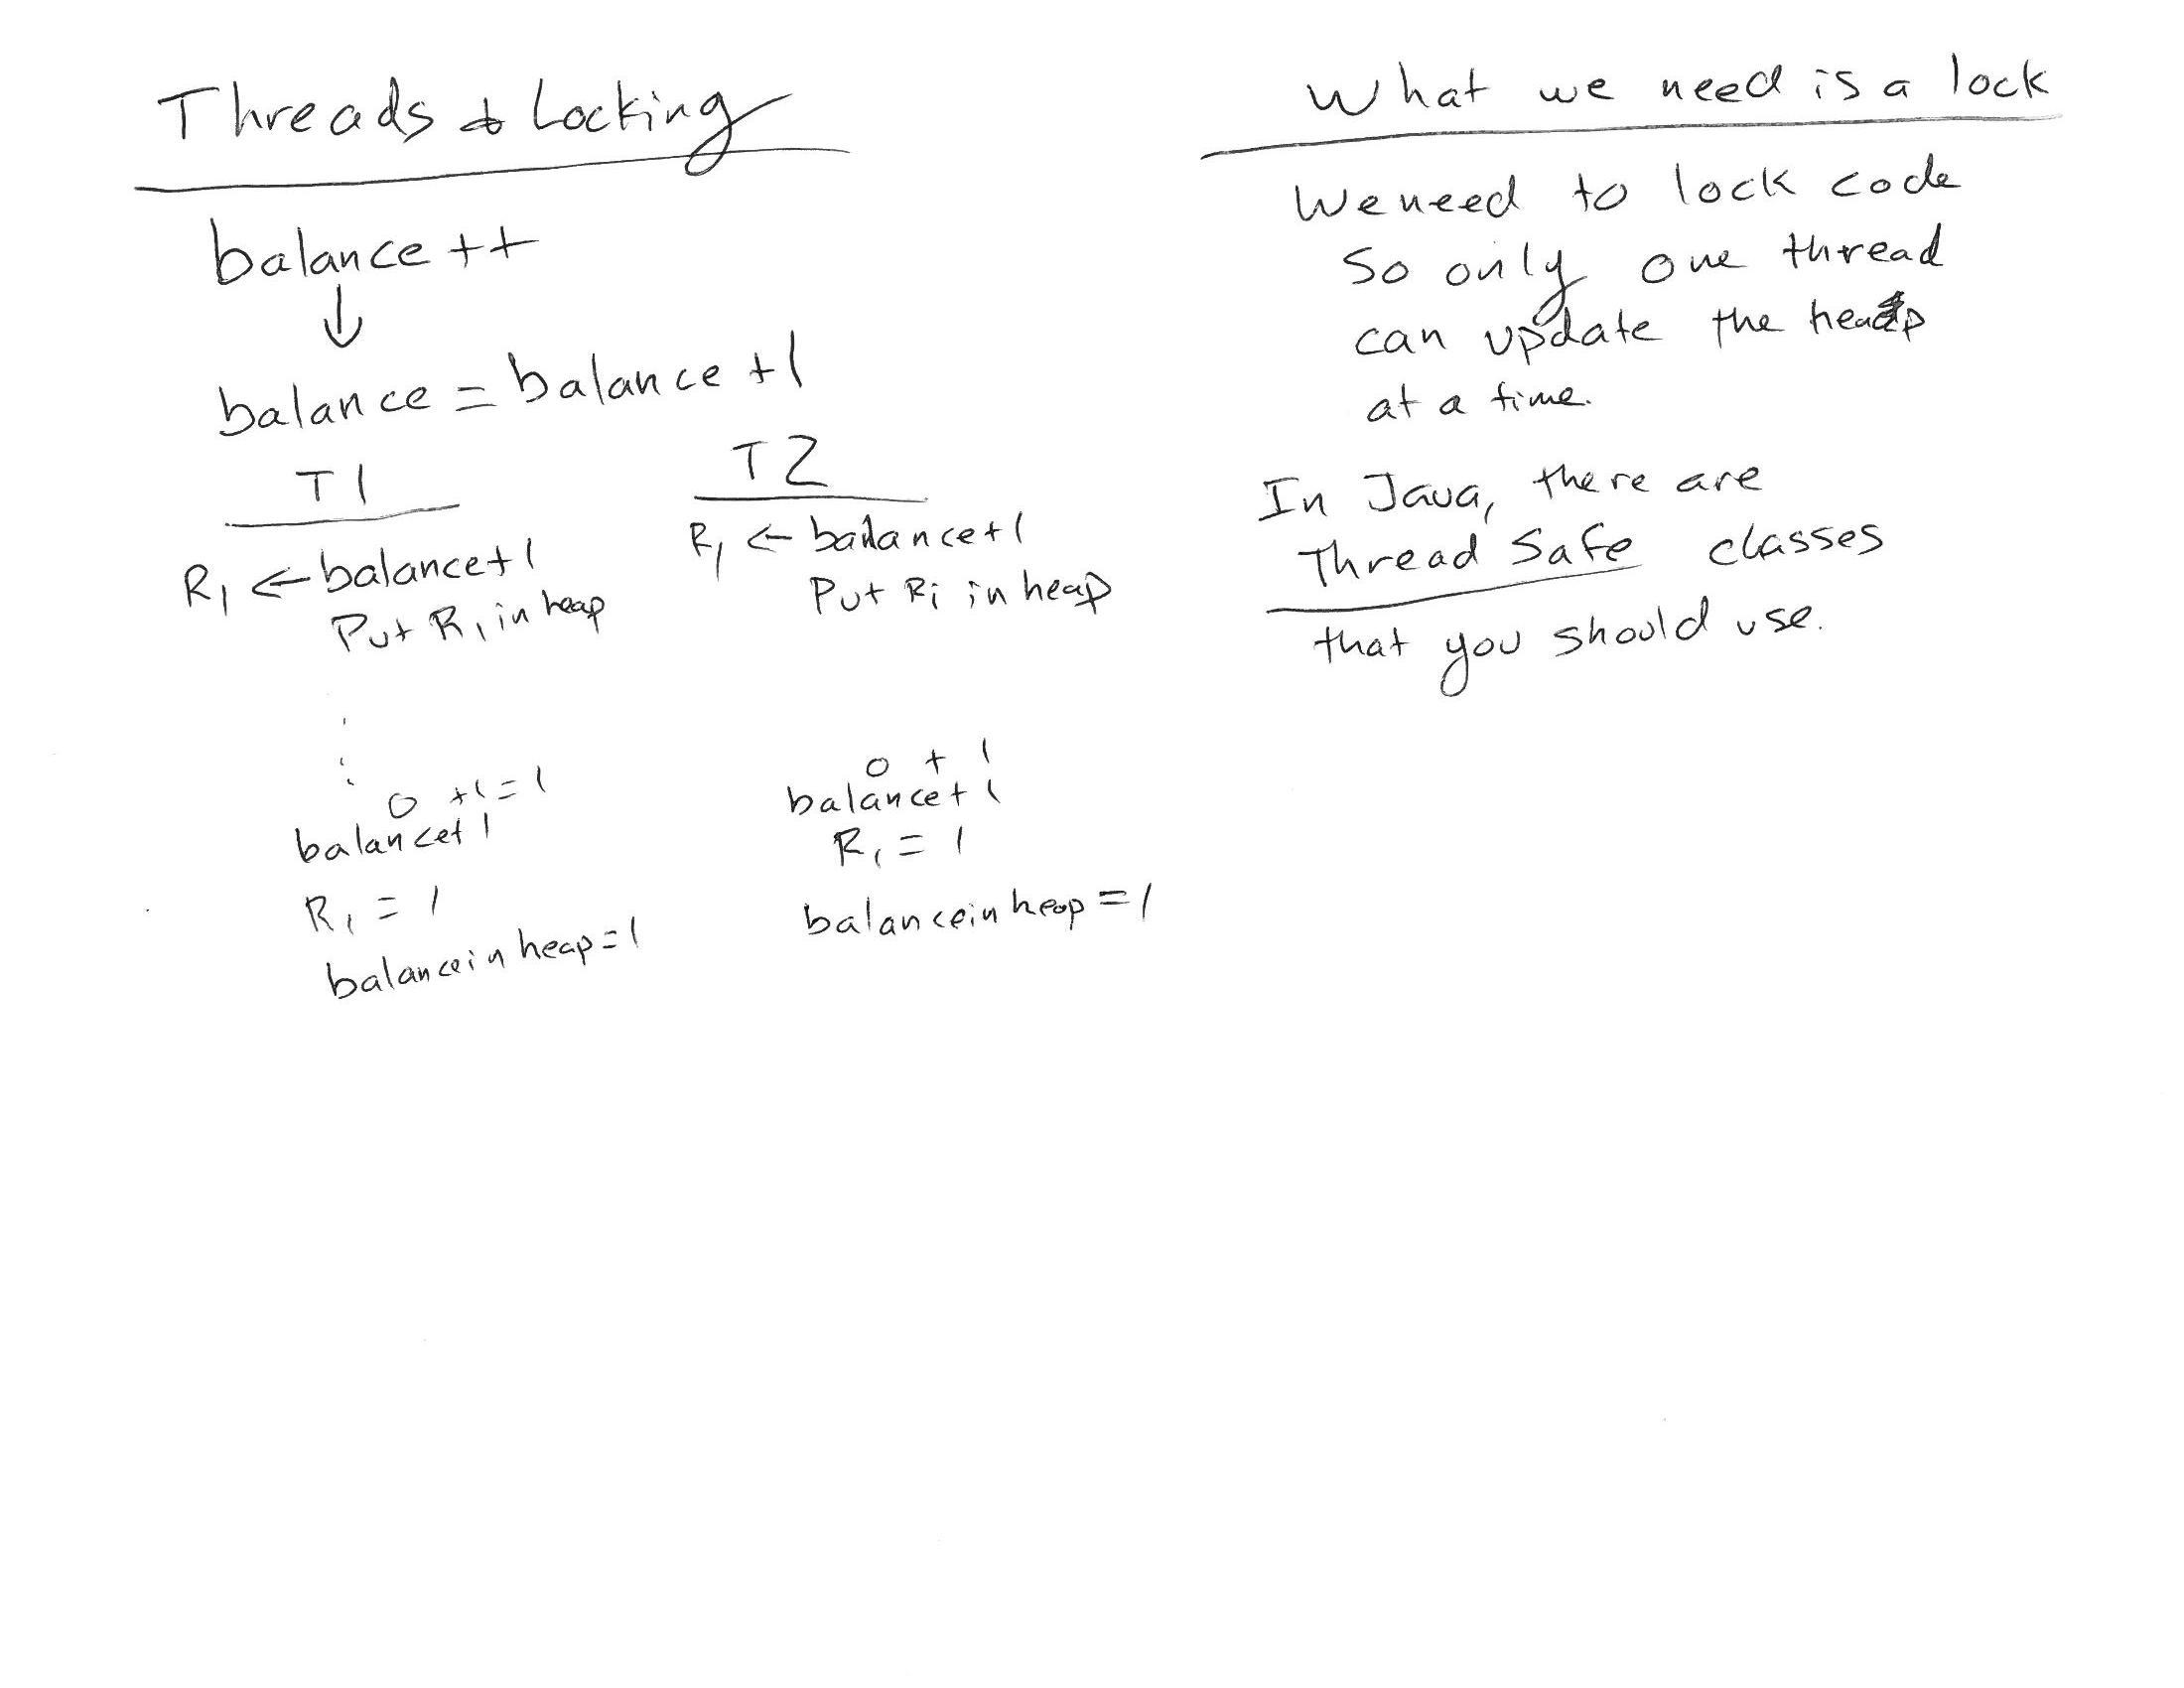 Threads & Locking
balance ++
↓
balance = balance +1
T1
R1 ← balance+1
Put R1 in heap
T2
R1 ← balance+1
Put R1 in heap
0 +1 = 1
balance+1
R1 = 1
balance in heap = 1
0 + 1
balance+1
R1 = 1
balance in heap = 1
What we need is a lock
We need to lock code
So only one thread
can update the heap
at a time.
In Java, there are
Thread Safe classes
that you should use.